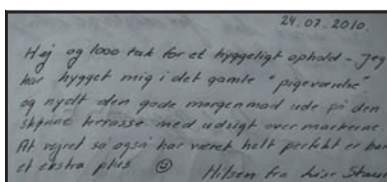 24.07.2010.
Hej og 1000 tak for et hyggeligt ophold - Jeg
har hygget mig i det gamle "pigeværelse"
og nydt den gode morgenmad ude på den
skønne terrasse med udsigt over markerne.
At vejret så også har været helt perfekt er bar
et ekstra plus ☺ Hilsen fra Lise